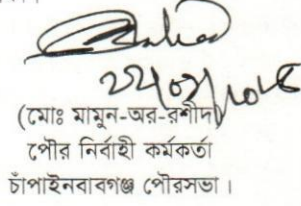 (মোঃ মামুন-অর-রশীদ)
পৌর নির্বাহী কর্মকর্তা
চাঁপাইনবাবগঞ্জ পৌরসভা।